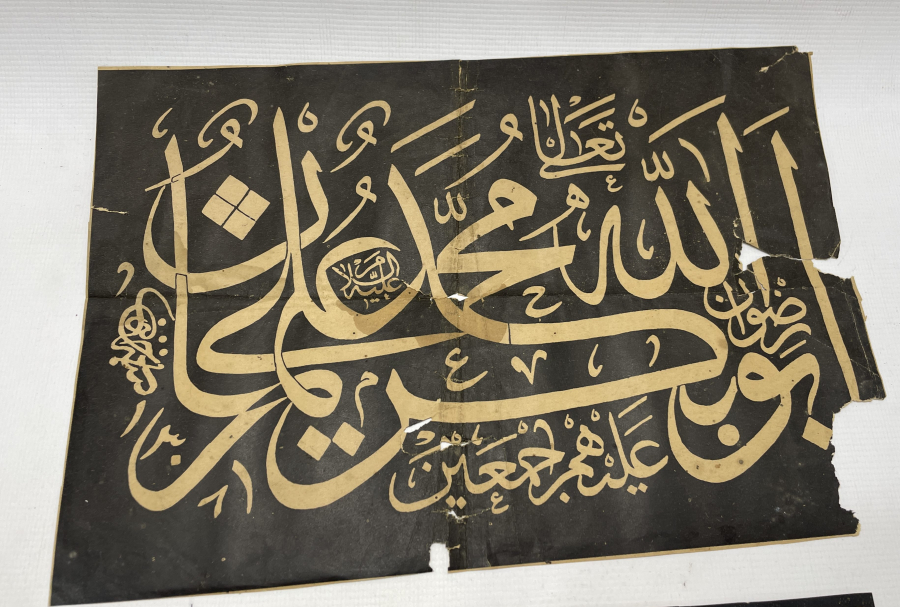 الله تعالى
محمد عليه السلام
ابوبكر عمر عثمان علي
رضوان
عليهم اجمعين